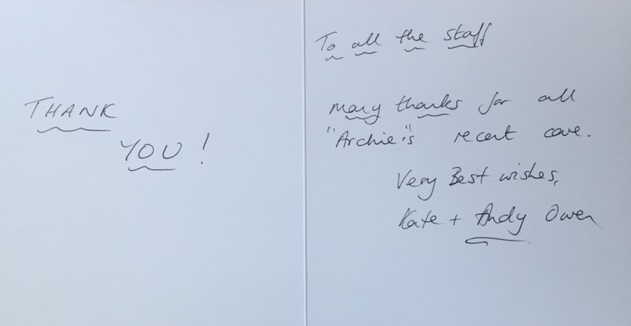 THANK
YOU!
To all the staff
Many thanks for all
"Archie's" recent care.
Very Best wishes,
Kate + Andy Owen